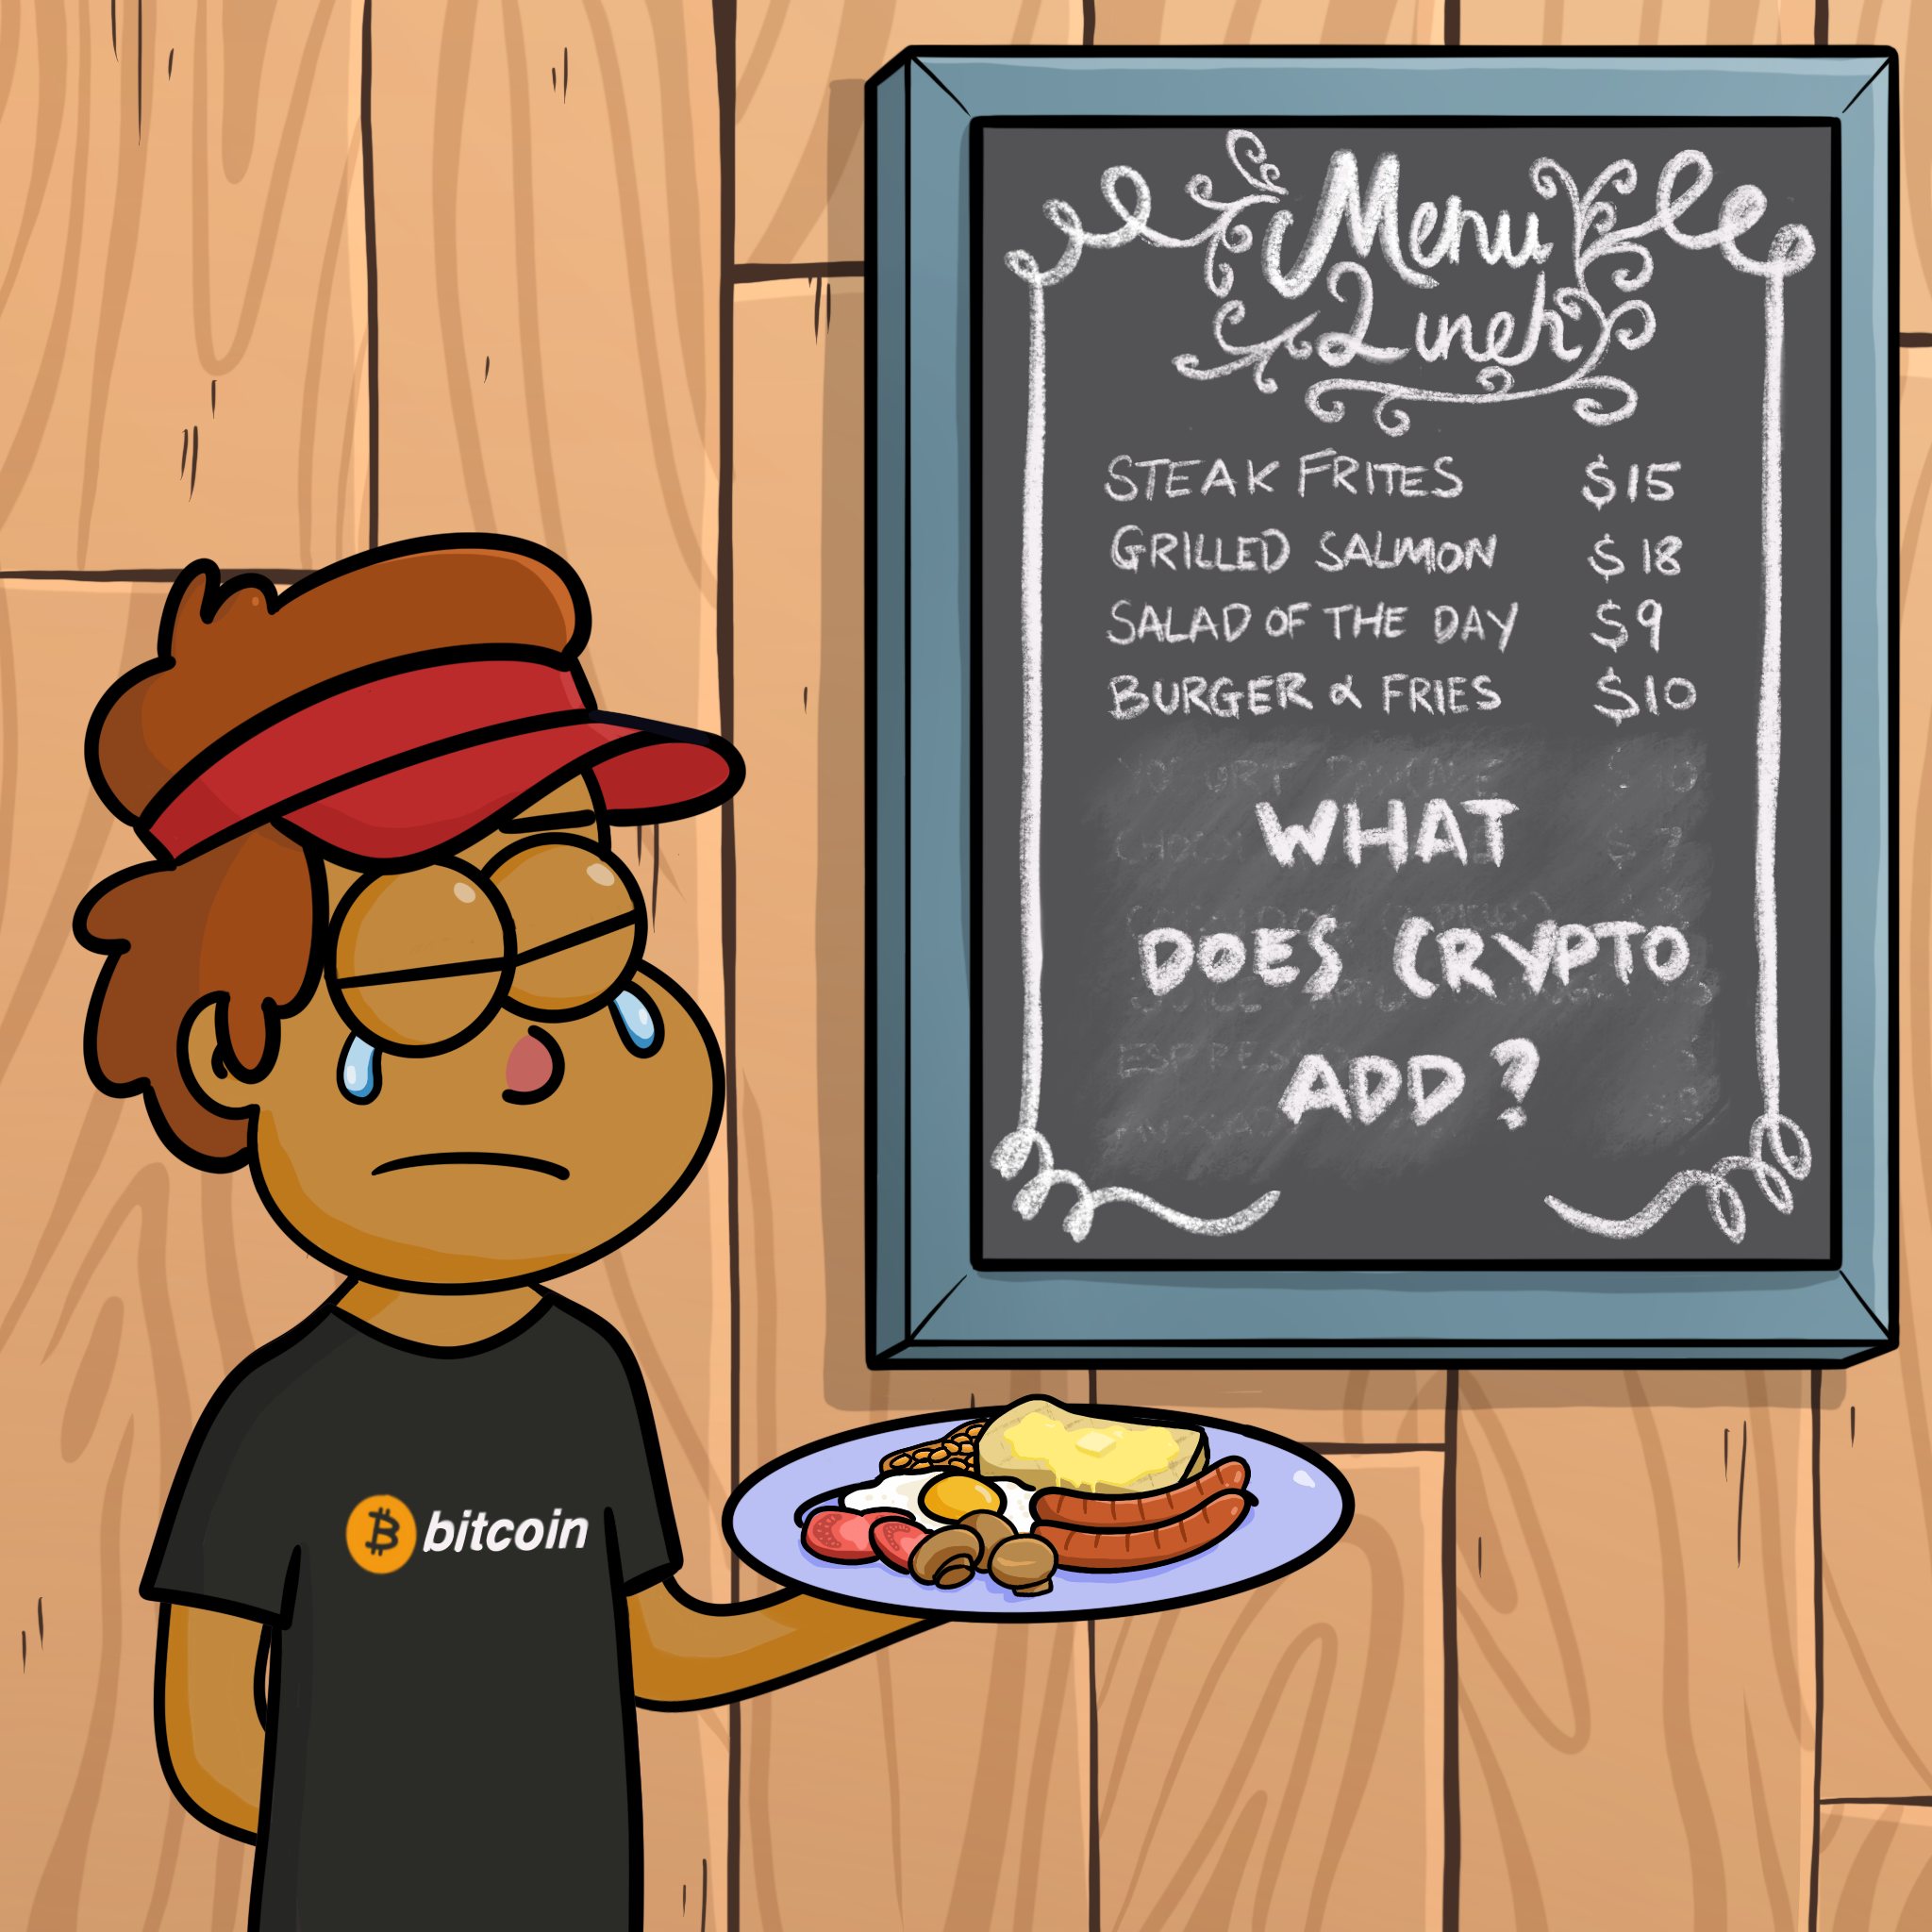 Menu
Lunch
STEAK FRITES $15
GRILLED SALMON $18
SALAD OF THE DAY $9
BURGER & FRIES $10
WHAT
DOES CRYPTO
ADD?
bitcoin